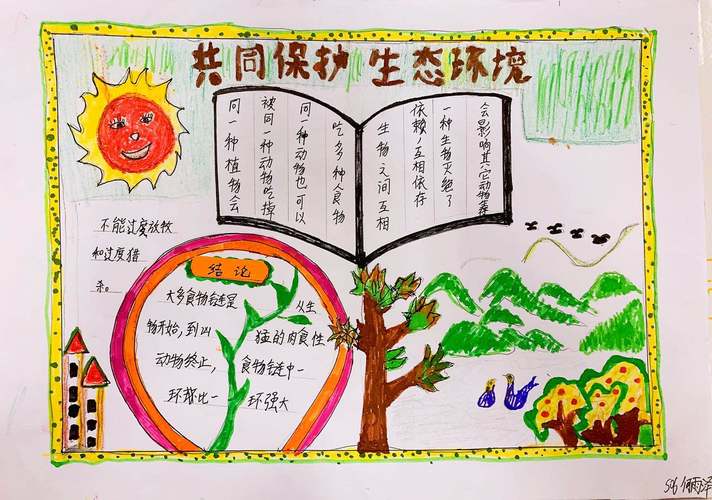 共同保护 生态环境
同一种植物会
被同一种动物吃掉
同一种动物也可以
吃多种人食物
生物之间互相
依赖,互相依存
一种生物灭绝了
会影响其它动物
不能过度放牧
和过度猎
杀。
结论
大多食物链是 从生
物开始,到凶 猛的肉食性
动物终止, 食物链中一
环都比一 环强大
何雨泽